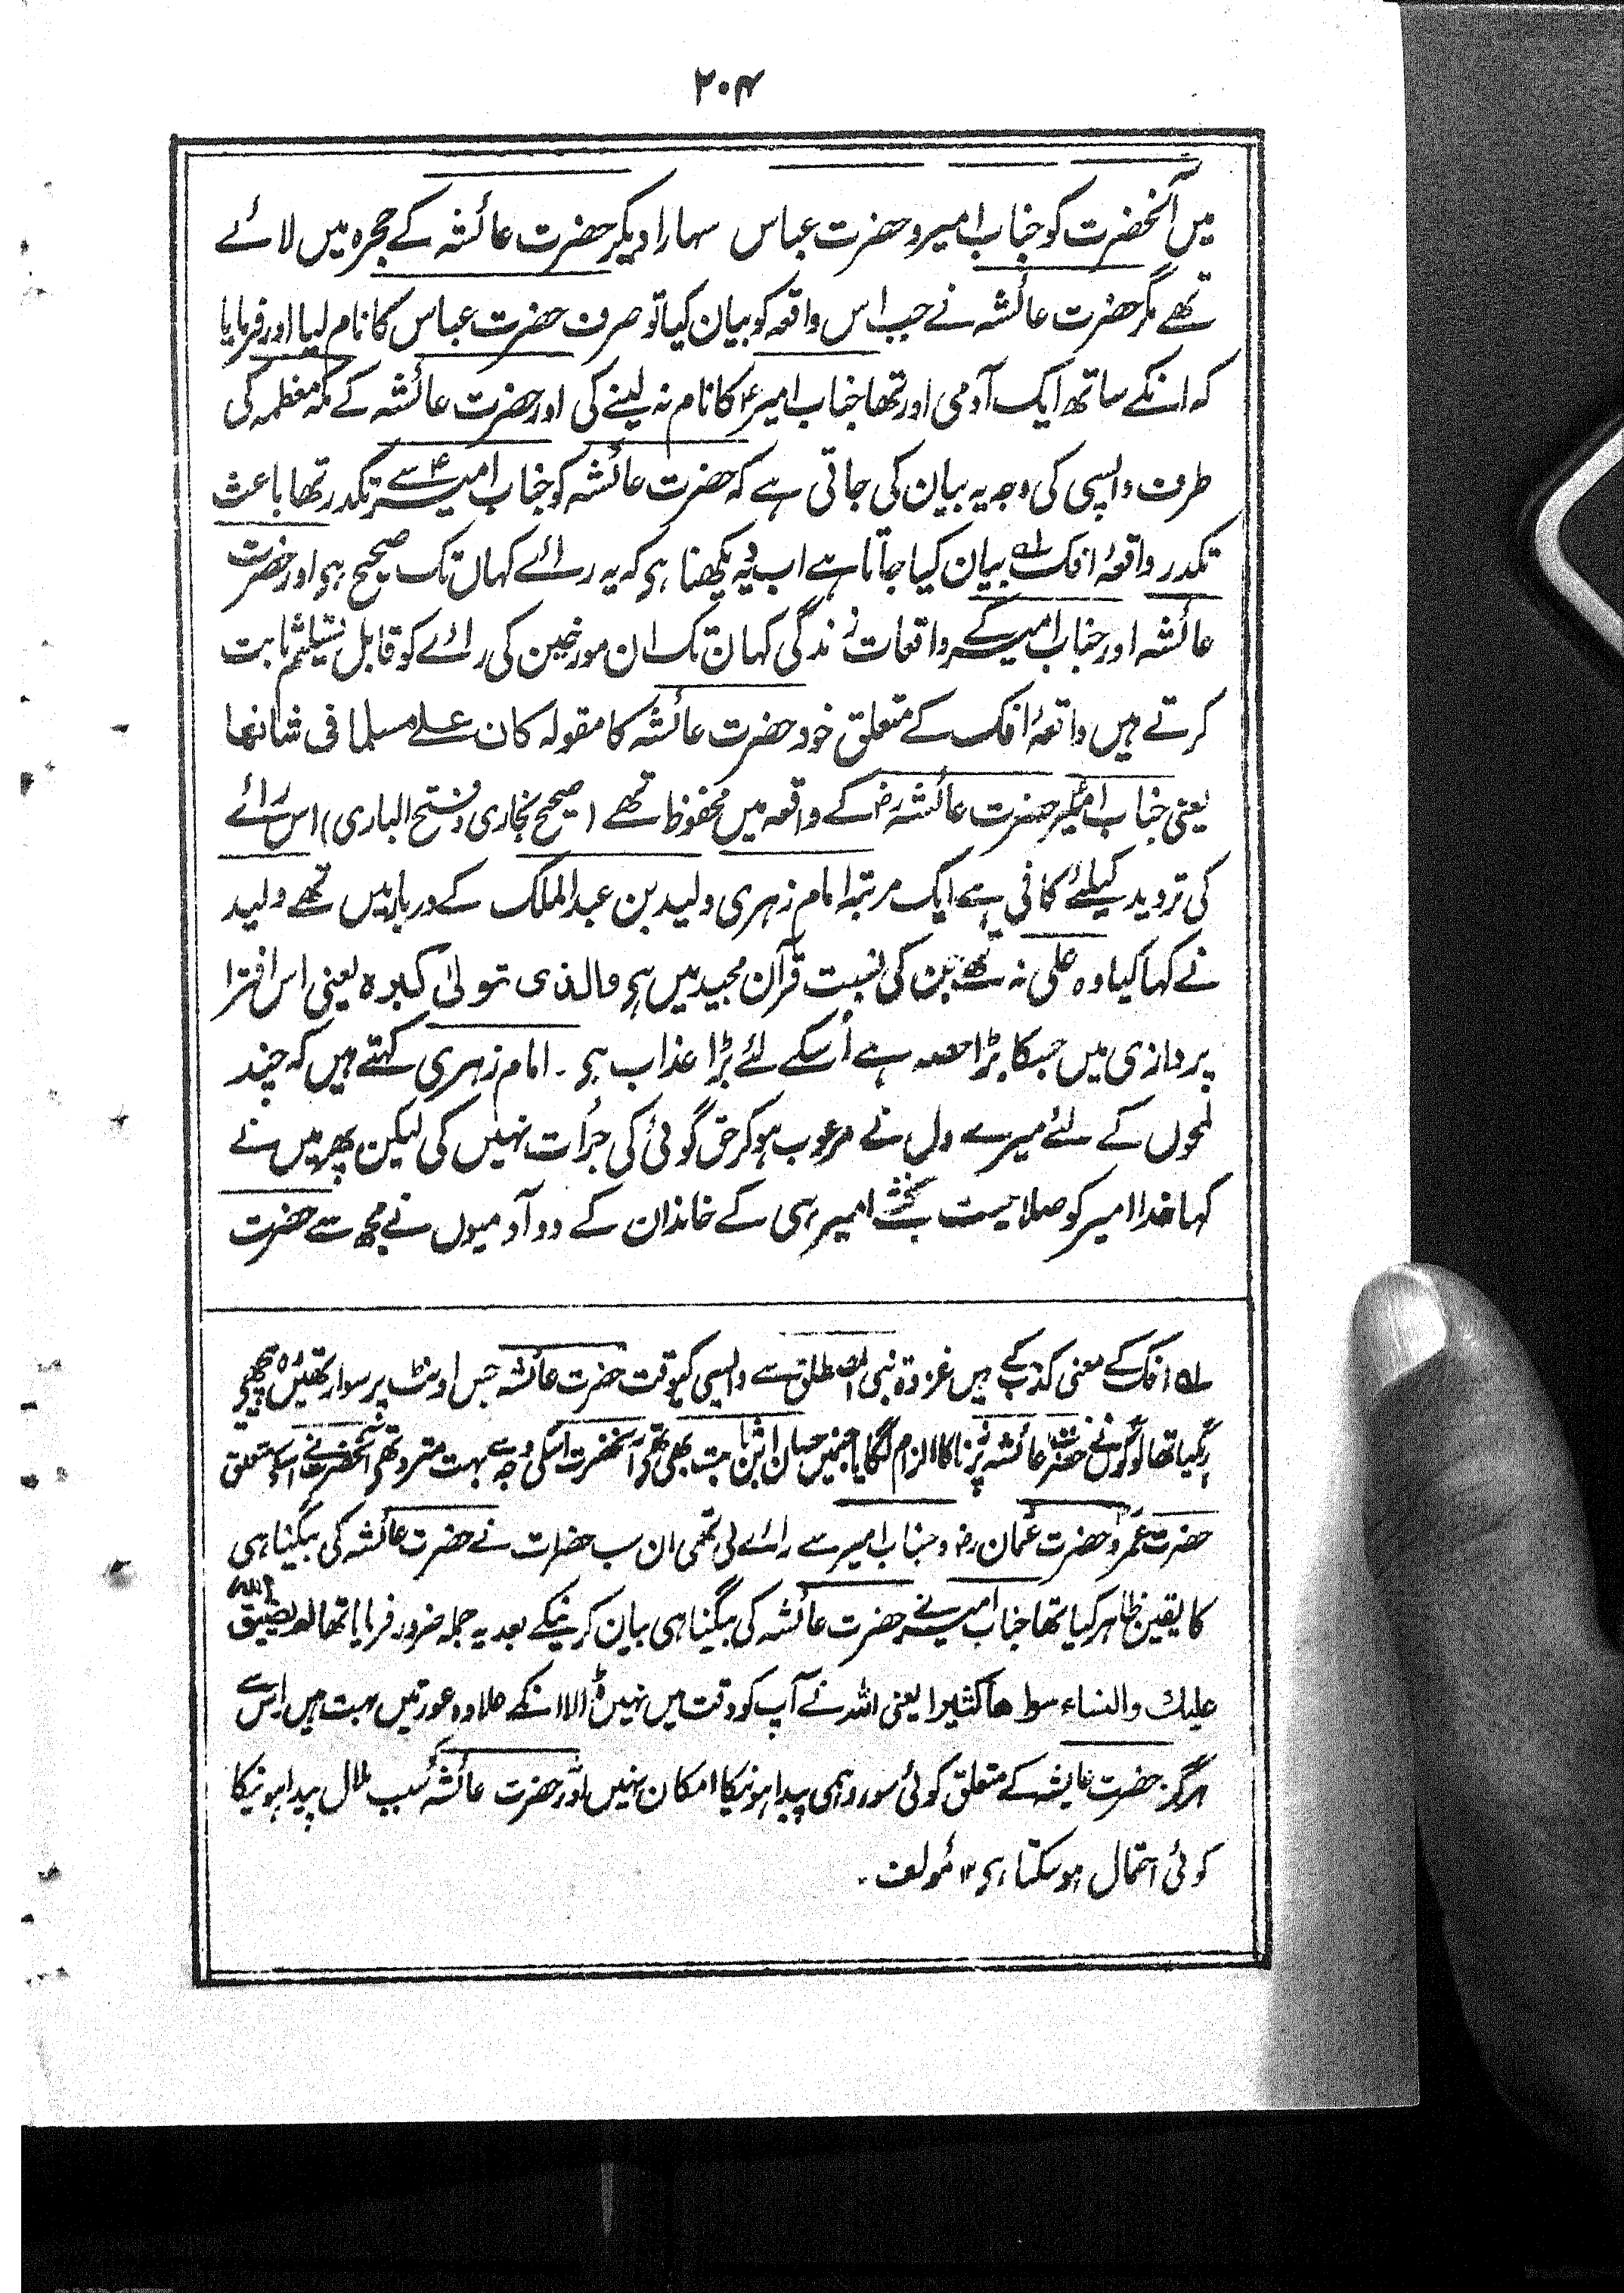 ۲۰۴
میں آنحضرت کو جناب امیر و حضرت عباس سہارا دیکر حضرت عائشہ کے حجرہ میں لائے
تھے مگر حضرت عائشہ نے جب اس واقعہ کو بیان کیا تو صرف حضرت عباس کا نام لیا اور فرمایا
کہ انکے ساتھ ایک آدمی اور تھا جناب امیرؑ کا نام نہ لینے کی اور حضرت عائشہ کے مکہ معظمہ کی
طرف واپسی کی وجہ یہ بیان کی جاتی ہے کہ حضرت عائشہ کو جناب امیرؑ سے تکدر تھا باعث
تکدر واقعۂ افک لہ بیان کیا جاتا ہے اب یہ دیکھنا ہی کہ یہ رائے کہاں تک صحیح ہی اور حضرت
عائشہ اور جناب امیر کے واقعات زندگی کہاں تک ان مورخین کی رائے کو قابل تسلیم ثابت
کرتے ہیں واقعۂ افک کے متعلق خود حضرت عائشہ کا مقولہ کان علے مسلما فی شانھا
یعنی جناب امیرؑ حضرت عائشہ رض کے واقعہ میں محفوظ تھے (صحیح بخاری و فتح الباری) اس رائے
کی تردید کیلئے کافی ہے ایک مرتبہ امام زہری ولید بن عبدالملک کے دربار میں تھے ولید
نے کہا کیا وہ علی نہ تھے جن کی نسبت قرآن مجید میں ہی والذی تولیٰ کبرہ یعنی اس افترا
پردازی میں جسکا بڑا حصہ ہے اُسکے لئے بڑا عذاب ہی ۔ امام زہری کہتے ہیں کہ چند
لمحوں کے لئے میرے دل نے مرعوب ہو کر حق گوئی کی جرأت نہیں کی لیکن پھر میں نے
کہا خدا امیر کو صلاحیت بخشے امیر ہی کے خاندان کے دو آدمیوں نے مجھ سے حضرت
لہ افک کے معنی کذب کے ہیں غزوۂ بنی المصطلق سے واپسی کیوقت حضرت عائشہ جس اونٹ پر سوار تھیں وہ پیچھے
رہگیا تھا لوگوں نے حضرت عائشہ پر زنا کا الزام لگایا جنمیں حسان ابن ثابت بھی تھے آنحضرت اسکی وجہ سے بہت متردد تھے آنحضرت نے اسکے متعلق
حضرت عمرؓ و حضرت عثمان رض و جناب امیر سے رائے لی تھی ان سب حضرات نے حضرت عائشہ کی بیگناہی
کا یقین ظاہر کیا تھا جناب امیر نے حضرت عائشہ کی بیگناہی بیان کرنیکے بعد یہ جملہ ضرور فرمایا تھا لم یضیق اللہ
علیک والنساء سواھا کثیرا یعنی اللہ نے آپ کو دقت میں نہیں ڈالا انکے علاوہ عورتیں بہت ہیں اس سے
ہرگز حضرت عایشہ کے متعلق کوئی سوء وہمی پیدا ہونیکا امکان نہیں اور نہ حضرت عائشہ کے سبب ملال پیدا ہونیکا
کوئی احتمال ہو سکتا ہی ۱۲ مؤلف ۔